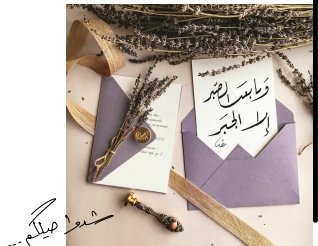 وما بعد الصبر
إلا الجبر
شدوا حيلكم...